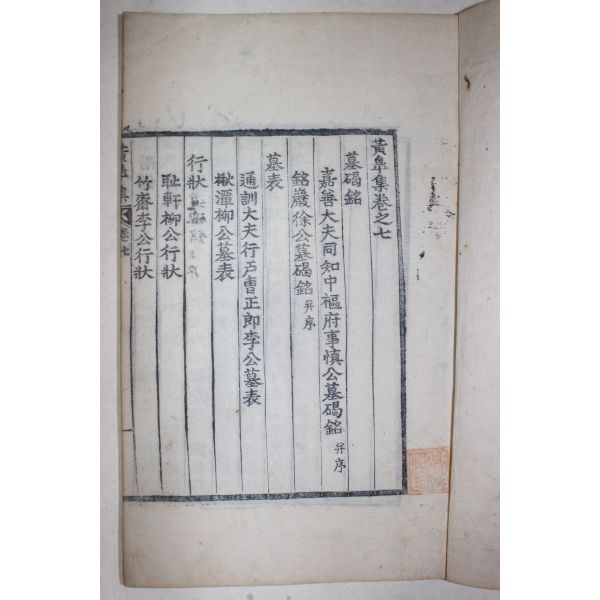 黃阜集卷之七
墓碣銘
嘉善大夫同知中樞府事愼公墓碣銘 幷序
銘巖徐公墓碣銘 幷序
墓表
通訓大夫行戶曹正郎李公墓表
楸潭柳公墓表
行狀
耻軒柳公行狀
竹齋李公行狀
黃阜集
卷七
一